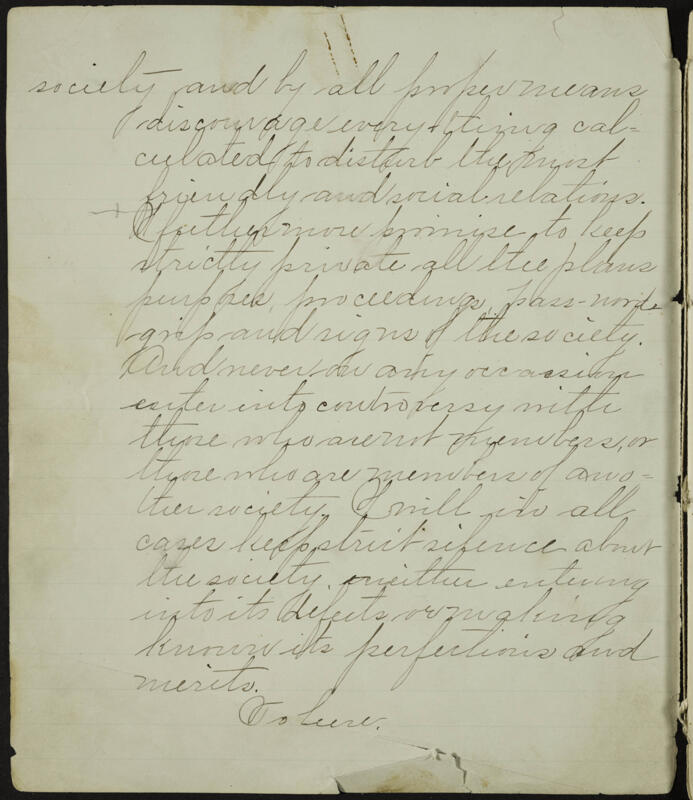 society, and by all proper means
discourage every thing cal=
culated to disturb the most
friendly and social relations.
+ I futhermore promise to keep
strictly private all the plans
purposes, proceedings, pass-words
grip and signs of the society.
And never on any occasion
enter into controversy with
those who are not members, or
those who are members of ano=
ther society. I will in all
cases keep strict silence about
the society. neither entering
into its defects or making
known its perfections and
merits.